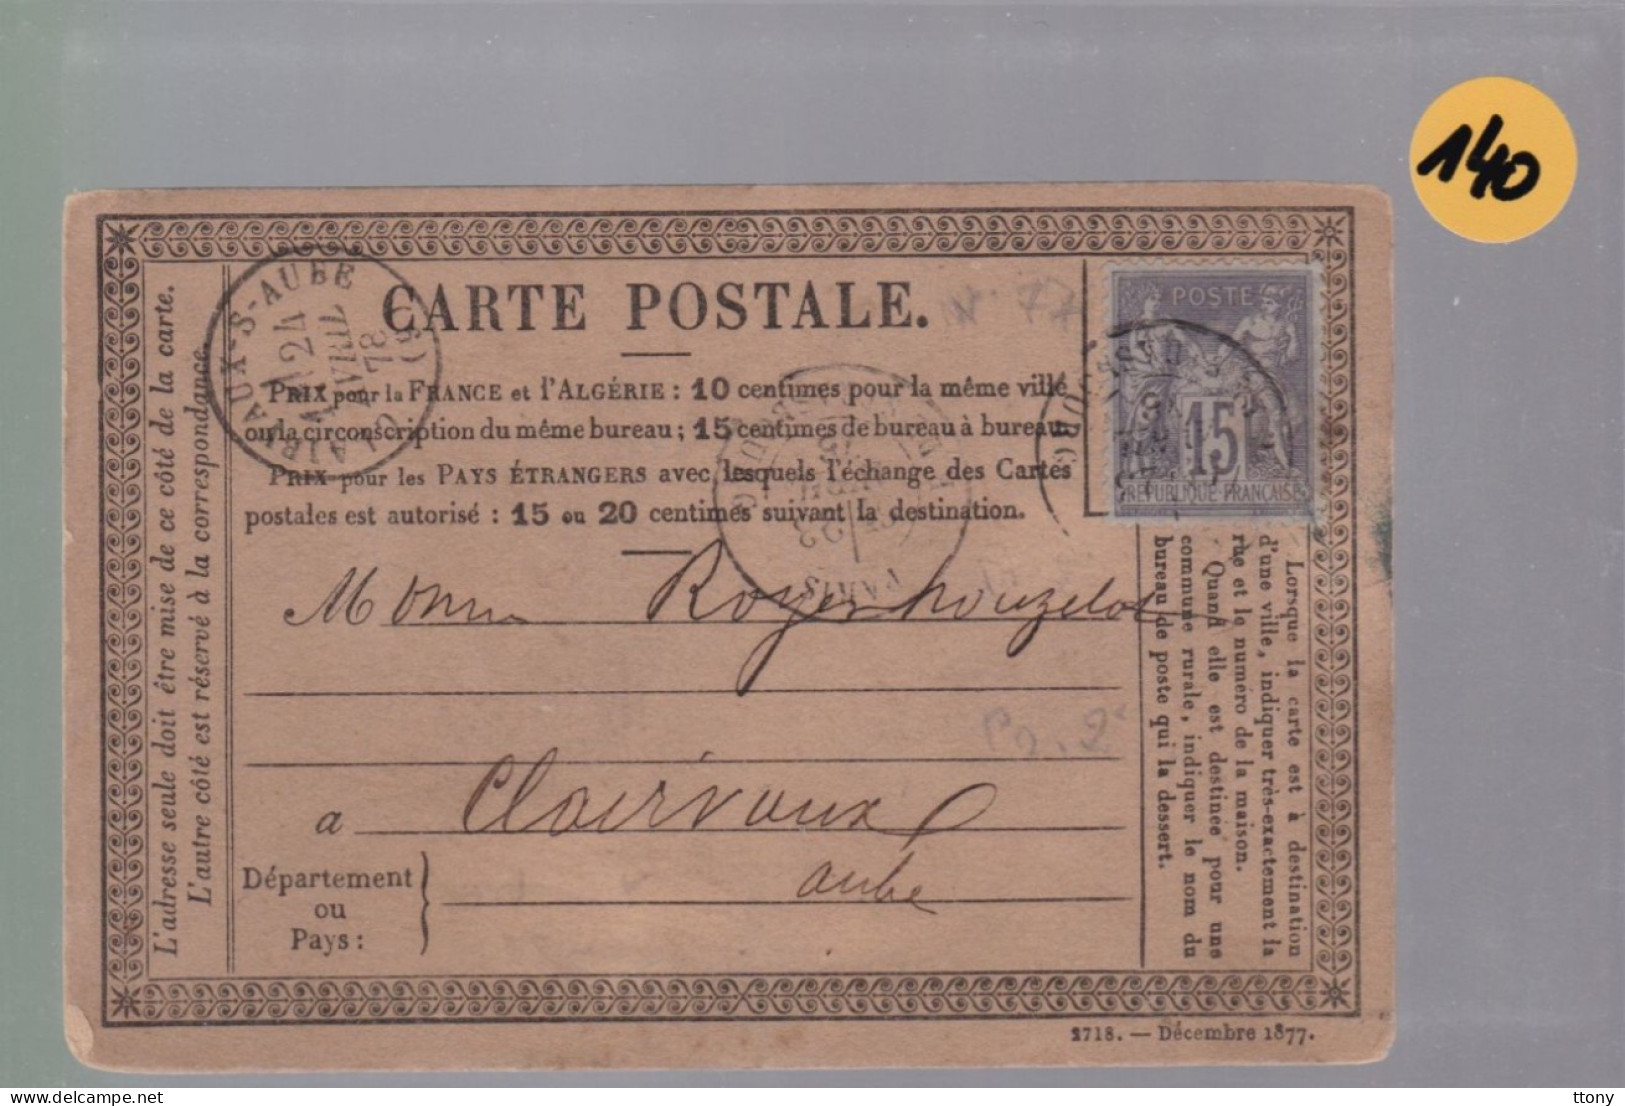 140
CARTE POSTALE.
N. 77
POSTE
15
REPUBLIQUE FRANCAISE
CLAIRVAUX-S-AUBE
24
AVRIL
78
(9)
PARIS
23
PRIX pour la FRANCE et l'ALGÉRIE : 10 centimes pour la même ville
ou la circonscription du même bureau ; 15 centimes de bureau à bureau.
PRIX pour les PAYS ÉTRANGERS avec lesquels l'échange des Cartes
postales est autorisé : 15 ou 20 centimes suivant la destination.
L'adresse seule doit être mise de ce côté de la carte.
L'autre côté est réservé à la correspondance.
a Clairvaux
Aube
Département
ou
Pays :
Lorsque la carte est à destination
d'une ville, indiquer très-exactement la
rue et le numéro de la maison.
Quand elle est destinée pour une
commune rurale, indiquer le nom du
bureau de poste qui la dessert.
2718. — Décembre 1877.
ttony